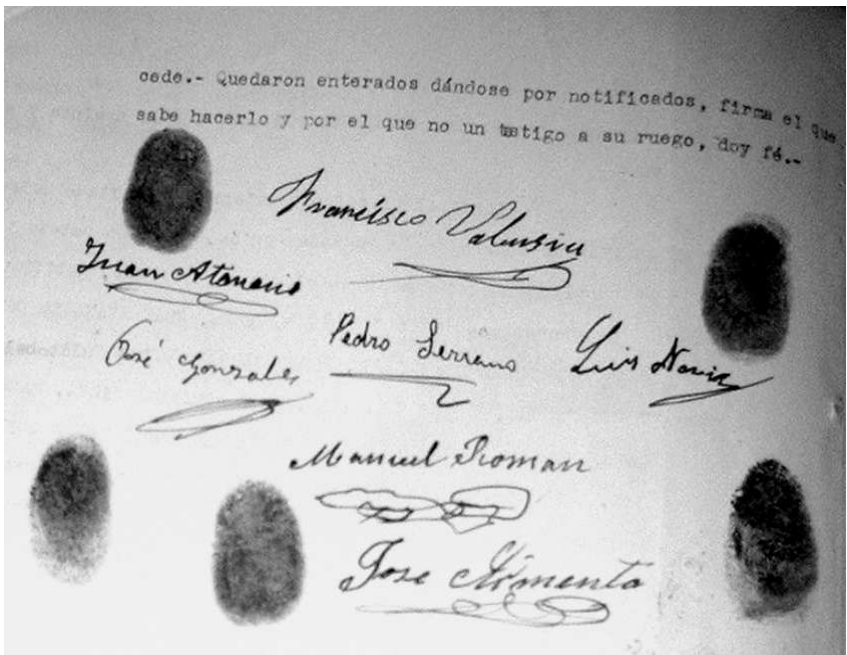 cede.- Quedaron enterados dándose por notificados, firma el que
sabe hacerlo y por el que no un testigo a su ruego, doy fé.-
Francisco Valensia
Juan Atanacio
José Gonzales Pedro Serrano Luis
Manuel Roman
Jose Armenta